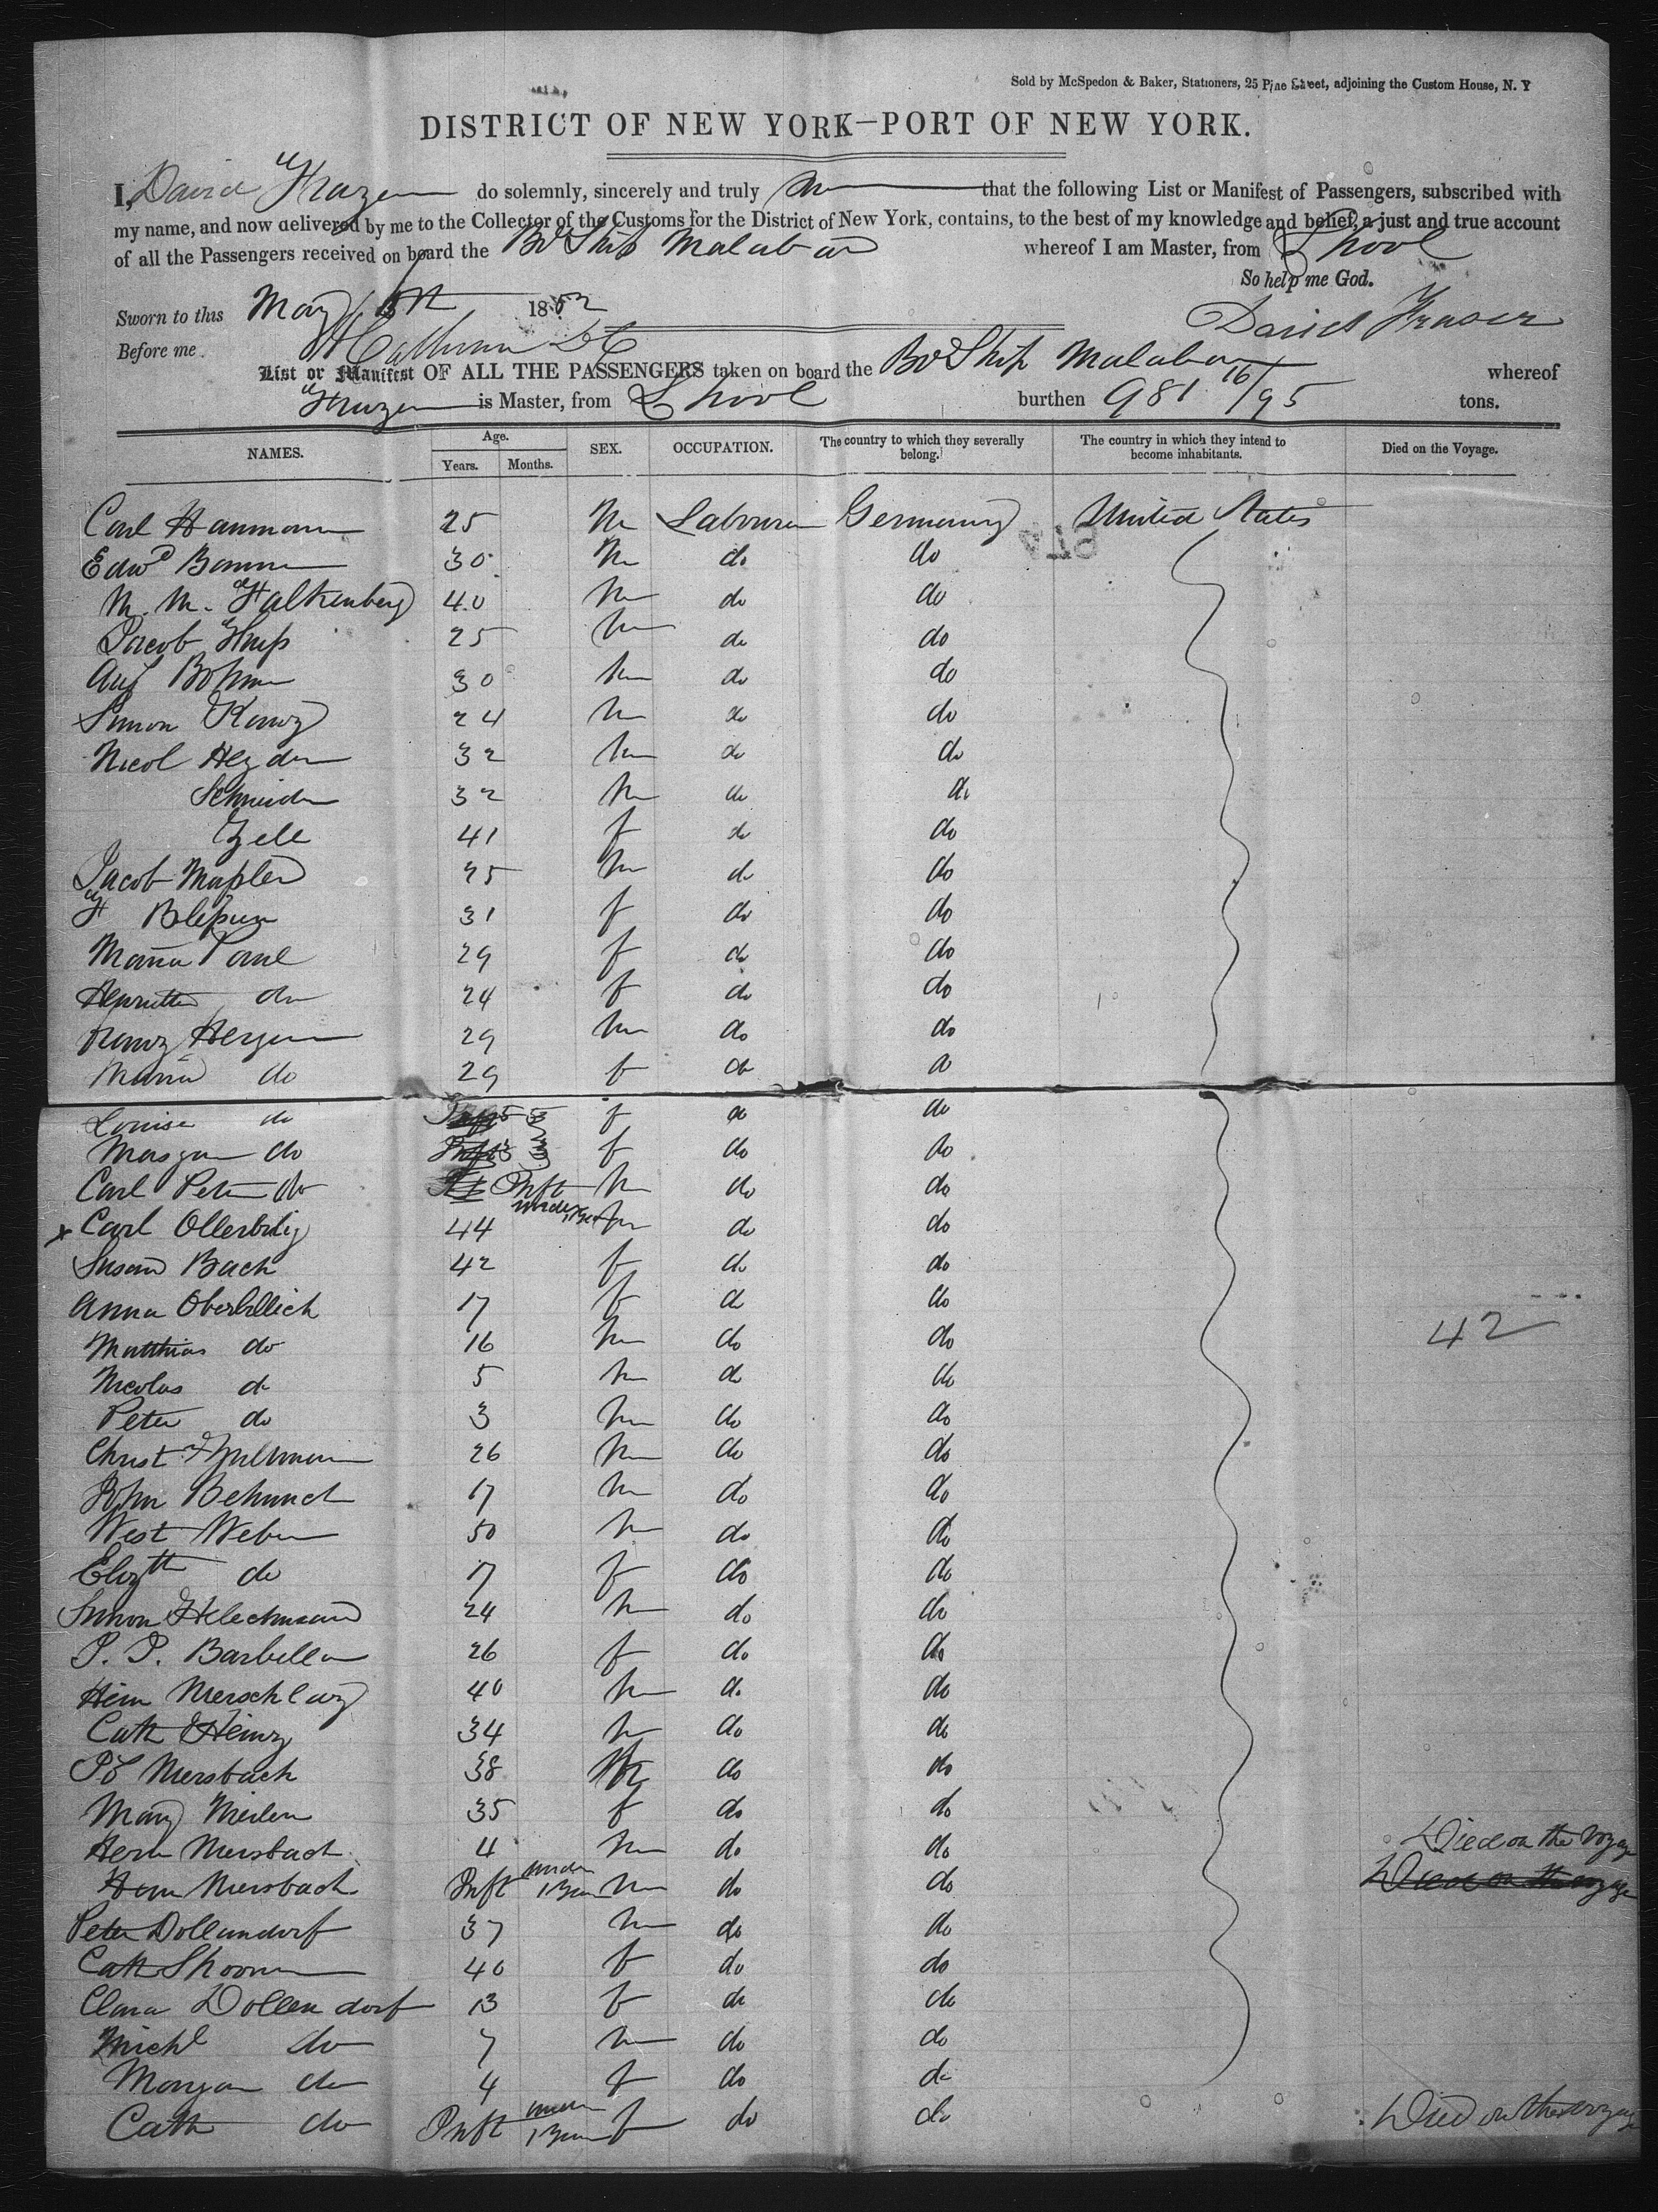 Sold by McSpedon & Baker, Stationers, 25 Pine Street, adjoining the Custom House, N. Y
DISTRICT OF NEW YORK—PORT OF NEW YORK.
I, David Frazer do solemnly, sincerely and truly that the following List or Manifest of Passengers, subscribed with
my name, and now delivered by me to the Collector of the Customs for the District of New York, contains, to the best of my knowledge and belief, a just and true account
of all the Passengers received on board the Br Ship Malabar whereof I am Master, from Lpool
So help me God.
Sworn to this May 1852
David Fraser
Before me
List or Manifest OF ALL THE PASSENGERS taken on board the Br Ship Malabar whereof
Frazer is Master, from Lpool burthen 981 16/95 tons.
NAMES. Age. SEX. OCCUPATION. The country to which they severally belong. The country in which they intend to become inhabitants. Died on the Voyage.
Years. Months.
Carl Hanmann 25 M Labourer Germany United States
Edwd 30 M do do
M. M. Falkenberg 40 M do do
Jacob 25 M do do
Aug Bohm 30 M do do
Simon 24 M do do
Nicol Heyden 32 M do do
Schneider 32 M do do
Zell 41 f do do
Jacob 25 M do do
F 31 f do do
Maria Paul 29 f do do
Henrietta do 24 f do do
29 M do do
Maria do 29 f do do
Louise do 5 f do do
do 3 f do do
Carl Peter do Inft under 1 year M do do
x Carl 44 M do do
Susan Bach 42 f do do
Anna Oberbillich 17 f do do
Matthias do 16 M do do 42
Nicolas do 5 M do do
Peter do 3 M do do
Christ 26 M do do
John 17 M do do
West Weber 50 M do do
Elizth do 7 f do do
Simon 24 M do do
P. P. Barbella 26 f do do
Hein 40 M do do
Cath Heinz 34 M do do
Mersbach 38 do do
Mary 35 f do do
Herm Mersbach 4 M do do Died on the Voyage
Herm Mersbach Inft under 1 year M do do Died on the voyage
Peter Dollendorf 37 M do do
Cath 40 f do do
Clara Dollendorf 13 f do do
Michl do 7 M do do
do 4 f do do
Cath do Inft under 1 year f do do Died on the voyage